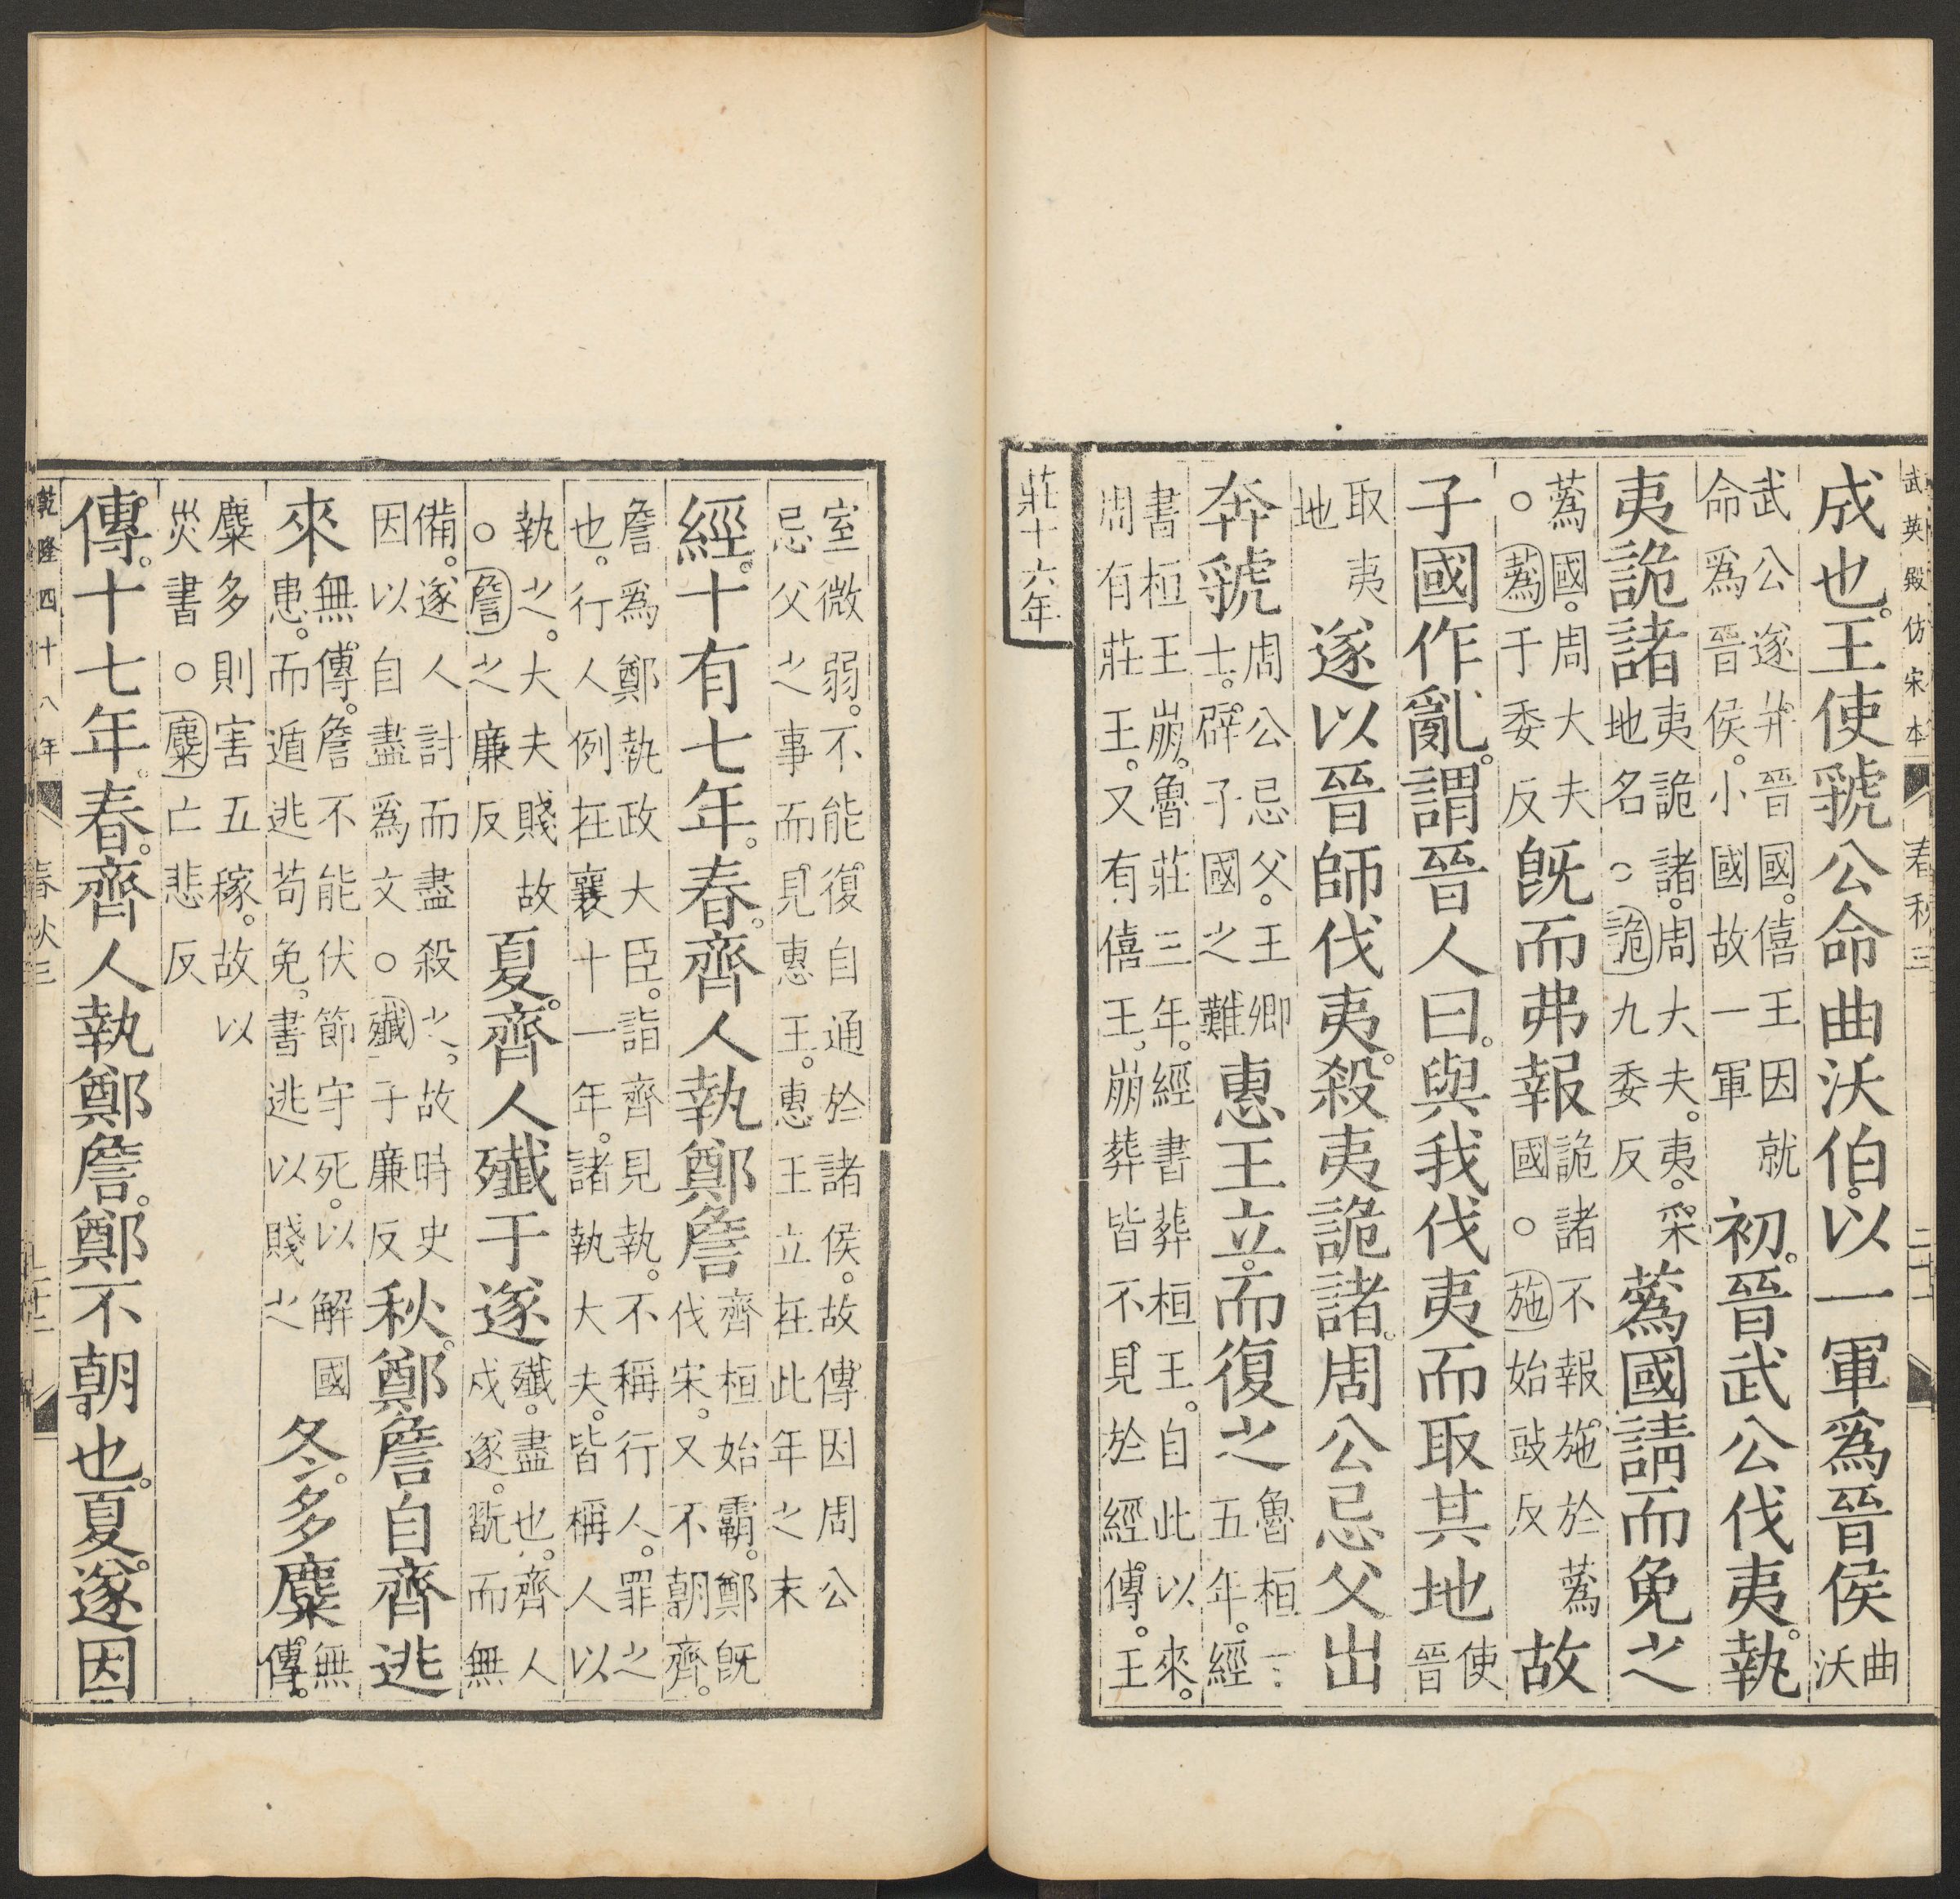 武英殿仿宋本　春秋三　二十一
成也。王使虢公命曲沃伯。以一軍爲晉侯曲沃
武公遂并晉國。僖王因就命爲晉侯。小國故一軍初。晉武公伐夷。執
夷詭諸夷詭諸。周大夫。夷。采地名○詭九委反蒍國請而免之
蒍國。周大夫○蒍于委反既而弗報詭諸不報。施於蒍國○施始豉反故
子國作亂。謂晉人曰。與我伐夷而取其地使晉
取夷地遂以晉師伐夷。殺夷詭諸。周公忌父出
奔虢周公忌父。王卿士。辟子國之難惠王立。而復之魯桓五年。經
書桓王崩。魯莊三年。經書葬桓王。自此以來。周有莊王。又有僖王。崩葬皆不見於經傳。王
莊十六年
室微弱。不能復自通於諸侯。故傳因周公忌父之事而見惠王。惠王立在此年之末
經。十有七年。春。齊人執鄭詹齊桓始霸。鄭既伐宋。又不朝齊。
詹爲鄭執政大臣。詣齊見執。不稱行人。罪之也。行人例在襄十一年。諸執大夫。皆稱人以
執之。大夫賤故○詹之廉反夏。齊人殲于遂殲。盡也。齊人戍遂。翫而無
備。遂人討而盡殺之。故時史因以自盡爲文○殲子廉反秋。鄭詹自齊逃
來無傳。詹不能伏節守死。以解國患。而遁逃苟免。書逃以賤之冬。多麋無傳。
麋多則害五稼。故以災書○麋亡悲反
傳。十七年。春。齊人執鄭詹。鄭不朝也。夏。遂因
乾隆四十八年　春秋三　二十二